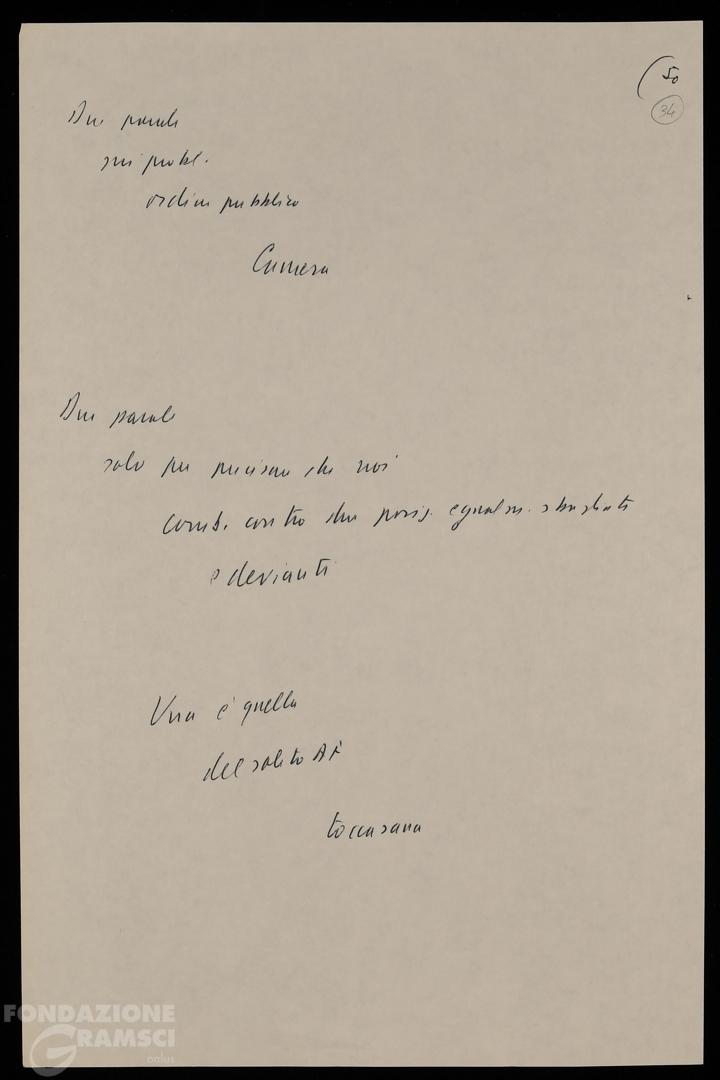 (50
34
Due parole
sui probl.
ordine pubblico
Camera
Due parole
solo per precisare che noi
comb. contro due posiz. egualm. sbagliate
e devianti
Una è quella
del solito
toccasana
FONDAZIONE
GRAMSCI
onlus